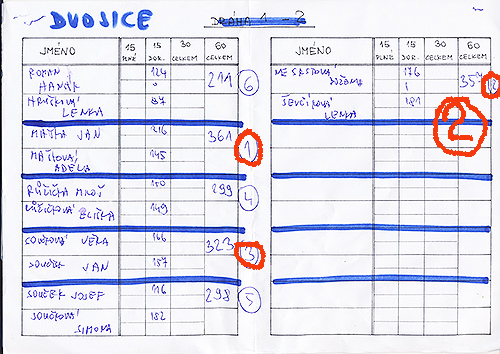 DVOJICE
DRÁHA 1 - 2
JMÉNO 15 PLNÉ 15 DOR. 30 CELKEM 60 CELKEM
ROMAN 124 211 6
HANÁK
HRUŠKOVÁ 87
LENKA
MAŤKA JAN 216 361 1
MAŤKOVÁ 145
ADÉLA
RŮŽIČKA MILOŠ 150 299 4
RŮŽIČKOVÁ ELIŠKA 149
SOUČKOVÁ VĚRA 166 323 3
SOUČEK JAN 157
SOUČEK JOSEF 116 298 5
SOUČKOVÁ 182
SIMONA
JMÉNO 15 PLNÉ 15 DOR. 30 CELKEM 60 CELKEM
176 357
ŠEVČÍKOVÁ 181 2
LENKA